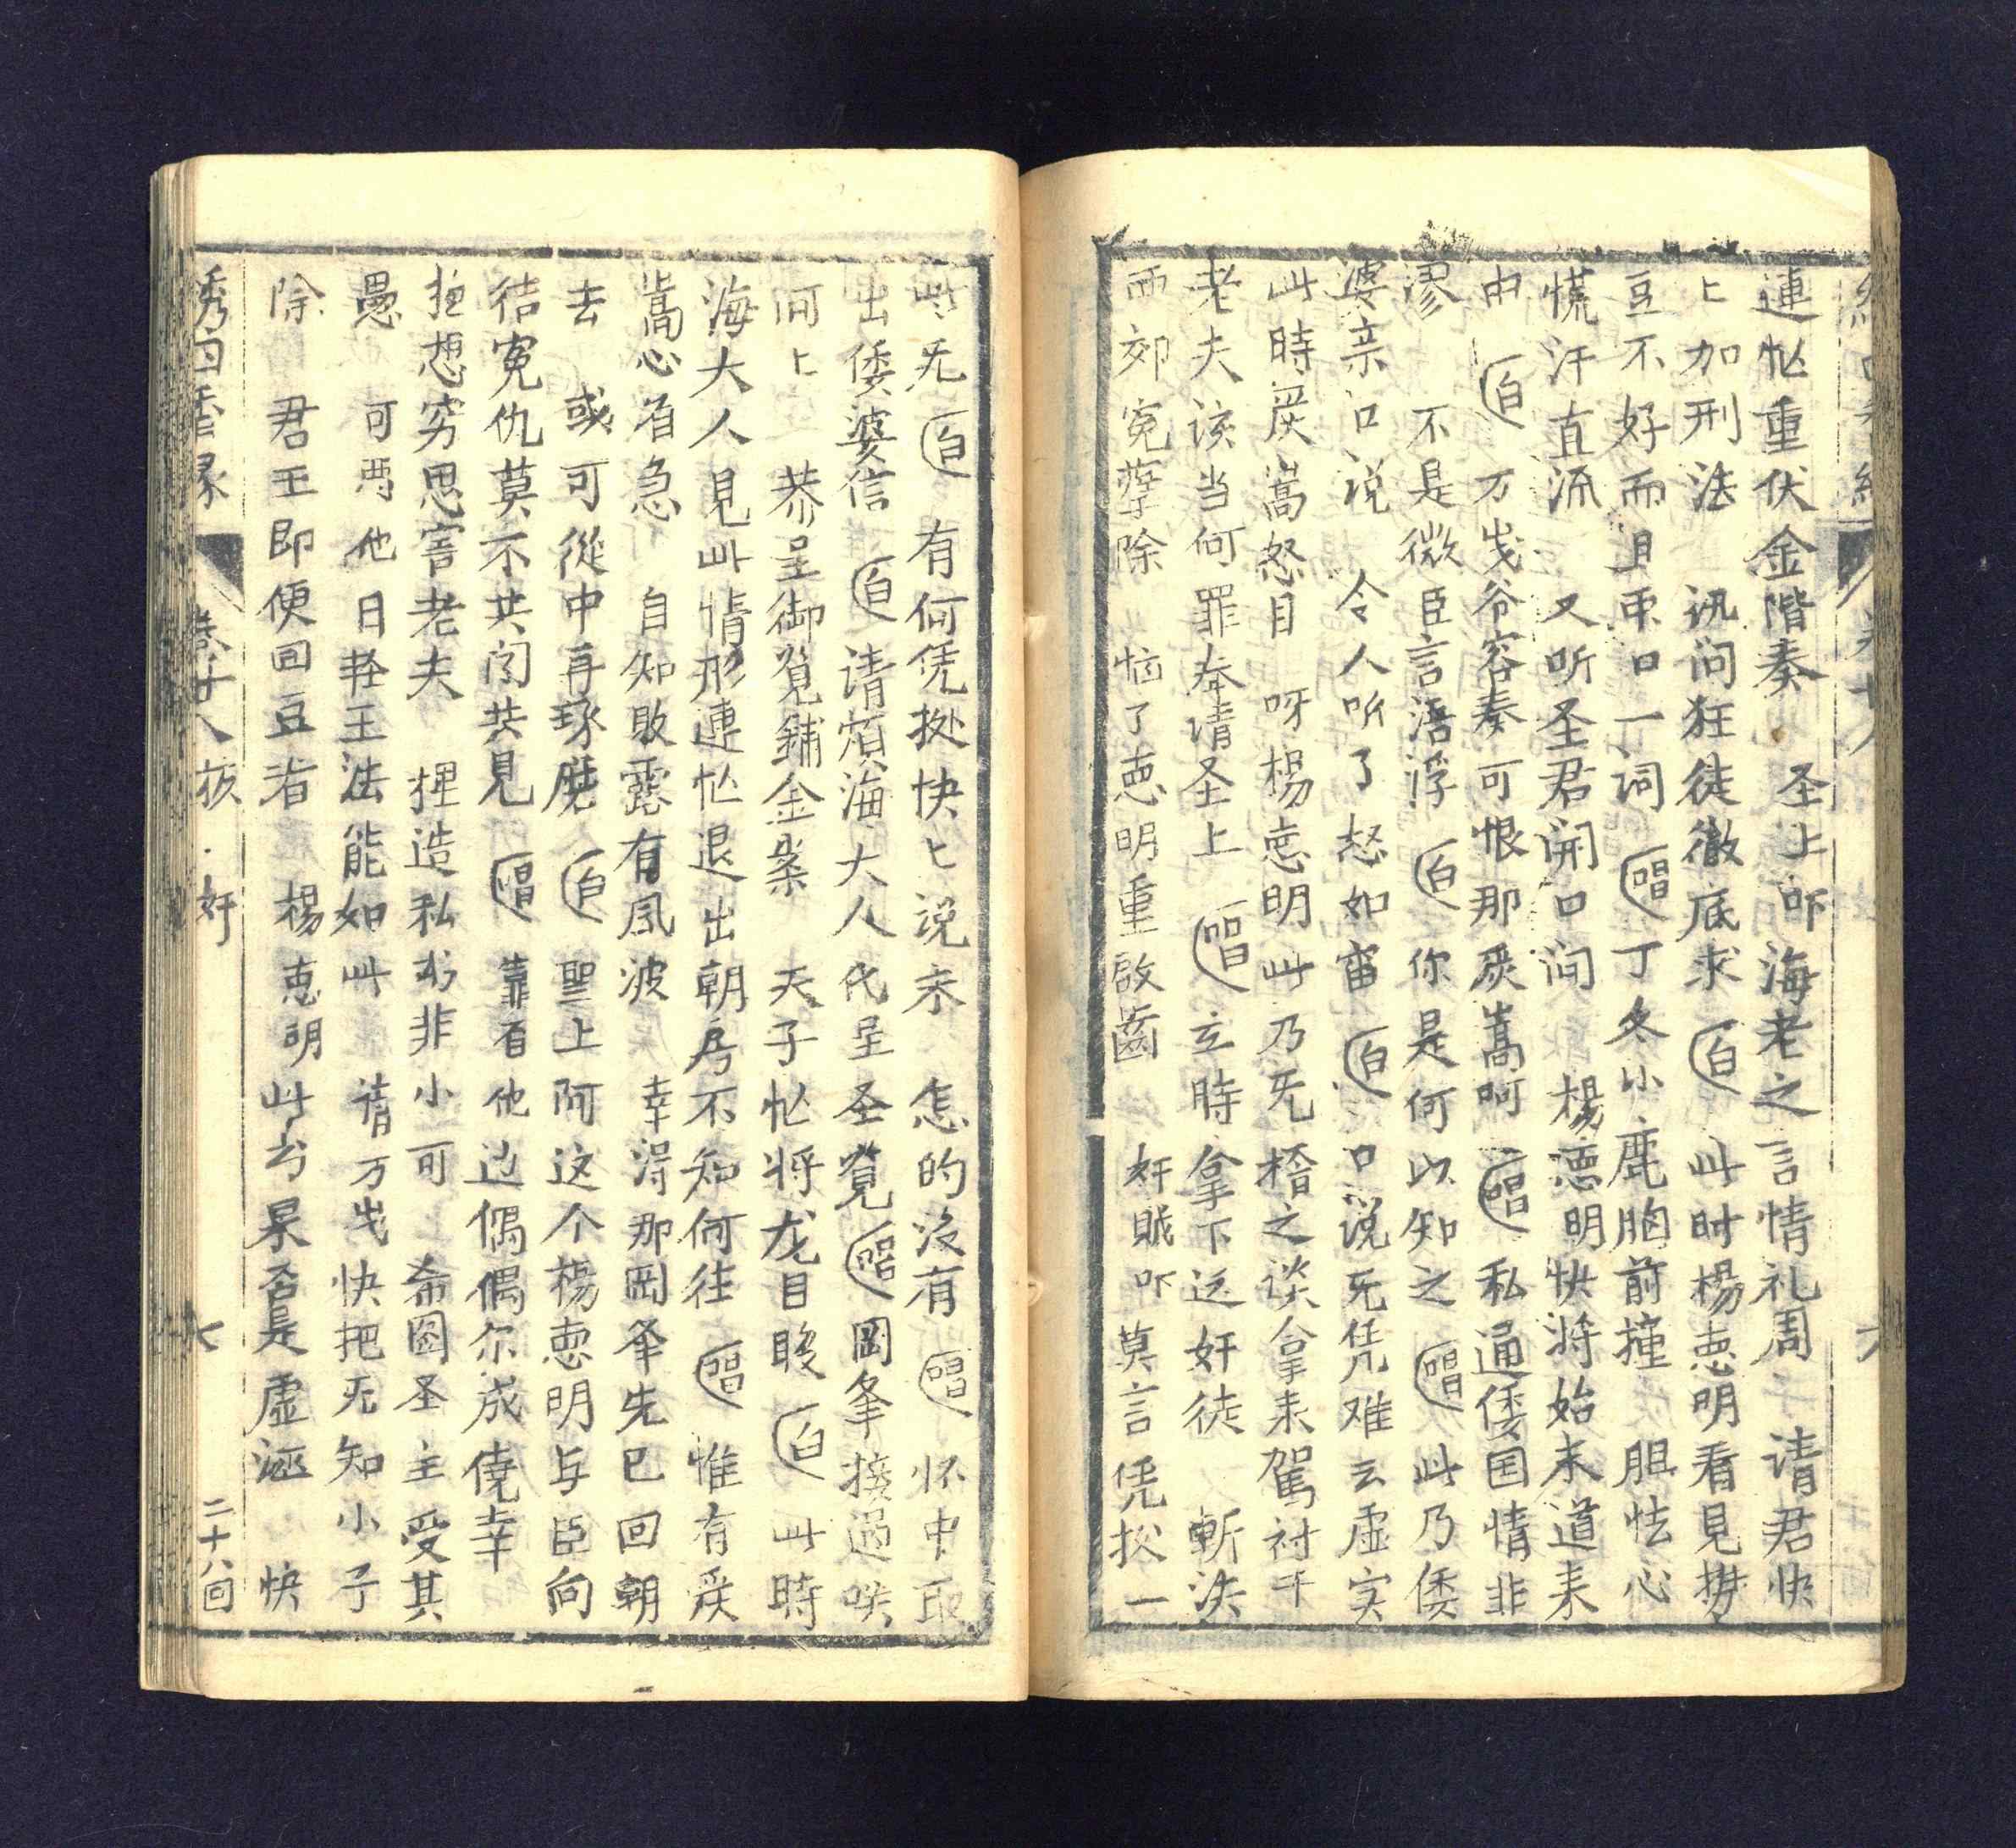 連忙重伏金階奏　圣上吓海老之言情礼周　请君快
上加刑法　讯问狂徒徹底求　白　此时楊恵明看見势
豆不好而且串口一词　唱　丁冬小鹿胸前撞　胆怯心
慌汗直流　又听圣君開口问　楊恵明快将始末道来
由　白　万岁爷容奏可恨那严嵩呵　唱　私通倭国情非
谬　不是微臣言語浮　白　你是何以知之　唱　此乃倭
婆亲口说　令人听了怒如雷　白　口说无凭难云虚实
此時严嵩怒目　呀楊恵明此乃无稽之谈拿来駕衬
老夫该当何罪奉请圣上　唱　立時拿下这奸徒　斬决
西郊冤孽除　恼了恵明重啟齒　奸贼吓莫言凭挩一
此无　白　有何凭挩快ヒ说来　怎的没有　唱　怀中取
出倭婆信　白　请煩海大人代呈圣覧　唱　岡峯接過唉
何ヒ　恭呈御覧鋪金案　天子忙将龙目睃　白　此時
海大人見此情形連忙退出朝房不知何往　唱　惟有严
嵩心着急　自知敗露有風波　幸得那岡峯先已回朝
去　或可從中再琢磨　白　聖上阿这个楊恵明与臣向
结冤仇莫不共闻共見　唱　靠着他边偶偶尔成僥幸
想穷思害老夫　捏造私书非小可　希圖圣主受其
愚　可惡他日輕王法能如此　请万岁快把无知小子
除　君王即便回豆着　楊恵明此书果否是虚誣　快
绣　香缘　卷廿八　奸　七　二十八回